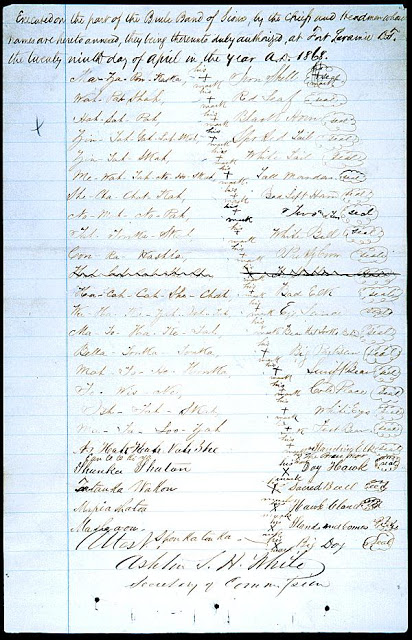 Executed on the part of the Brule Band of Sioux, by the Chiefs and Headmen whose
names are hereto annexed, they being thereunto duly authorized, at Fort Laramie D.T.
the twenty ninth day of April in the year A.D. 1868.
Ma-Za-Pon-Kaska, his + mark Iron Shell (seal)
Wah-Pat-Shah, his + mark Red Leaf (seal)
Hah-Sah-Pah, his + mark Black Horn (seal)
Zin-Tah-Gah-Lat-Wah, his + mark Spotted Tail (seal)
Zin-Tah-Skah, his + mark White Tail (seal)
Me-Wah-Tah-Ne-Ho-Skah, his + mark Tall Mandan (seal)
She-Cha-Chat-Kah, his + mark Bad Left Hand (seal)
No-Mah-No-Pah, his + mark Two & Two (seal)
Tah-Tonka-Skah, his + mark White Bull (seal)
Con-Ra-Washta, his + mark Pretty Coon (seal)
Ha-Cah-Cah-She-Chah, his + mark Bad Elk (seal)
his + mark Eye Lance (seal)
Ma-To-Ha-Ke-Tah, his + mark Bear that looks behind (seal)
Bella-Tonka-Tonka, his + mark Big Partisan (seal)
Mah-To-Ho-Honka, his + mark Swift Bear (seal)
To-Wis-Ne, his + mark Cold Place (seal)
Ish-Tah-Skah, his + mark White Eyes (seal)
Ma-Ta-Loo-Zah his + mark Fast Bear (seal)
As Hah Kah Nah Zhe his x mark Standing Elk (seal)
Can te te Ki ya his x mark The Brave Heart (seal)
Shunka Shaton his x mark Day Hawk (seal)
Tatanka Wakon his x mark Sacred Bull (seal)
Mapia Shaton his x mark Hawk Cloud (seal)
Masha a ow his x mark Stands and Comes (seal)
Shon ka ton ka his x mark Big Dog (seal)
Attest,
Ashton S. H. White
Secretary of Commission